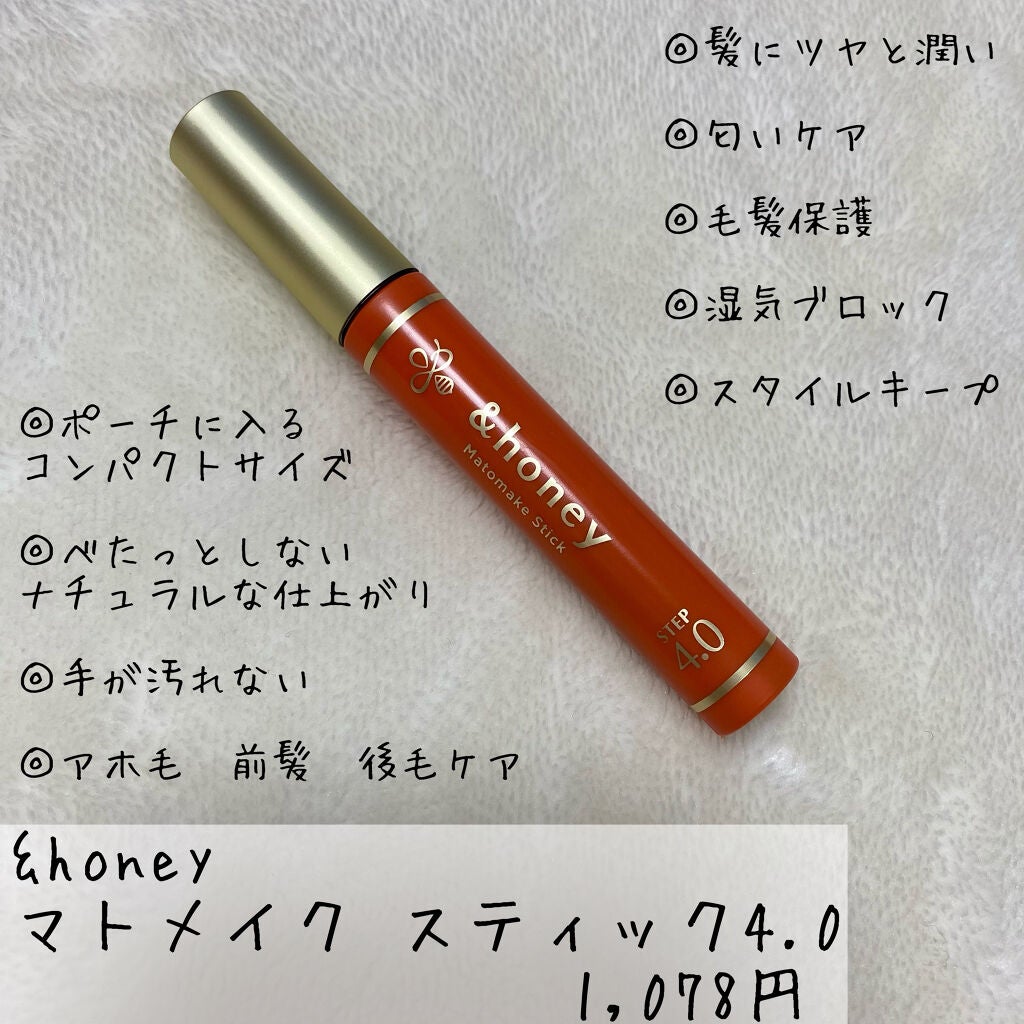 ◎髪にツヤと潤い
◎匂いケア
◎毛髪保護
◎湿気ブロック
◎スタイルキープ
◎ポーチに入る
コンパクトサイズ
◎べたっとしない
ナチュラルな仕上がり
◎手が汚れない
◎アホ毛　前髪　後毛ケア
&honey
Matomake Stick
STEP
4.0
&honey
マトメイク スティック4.0
1,078円